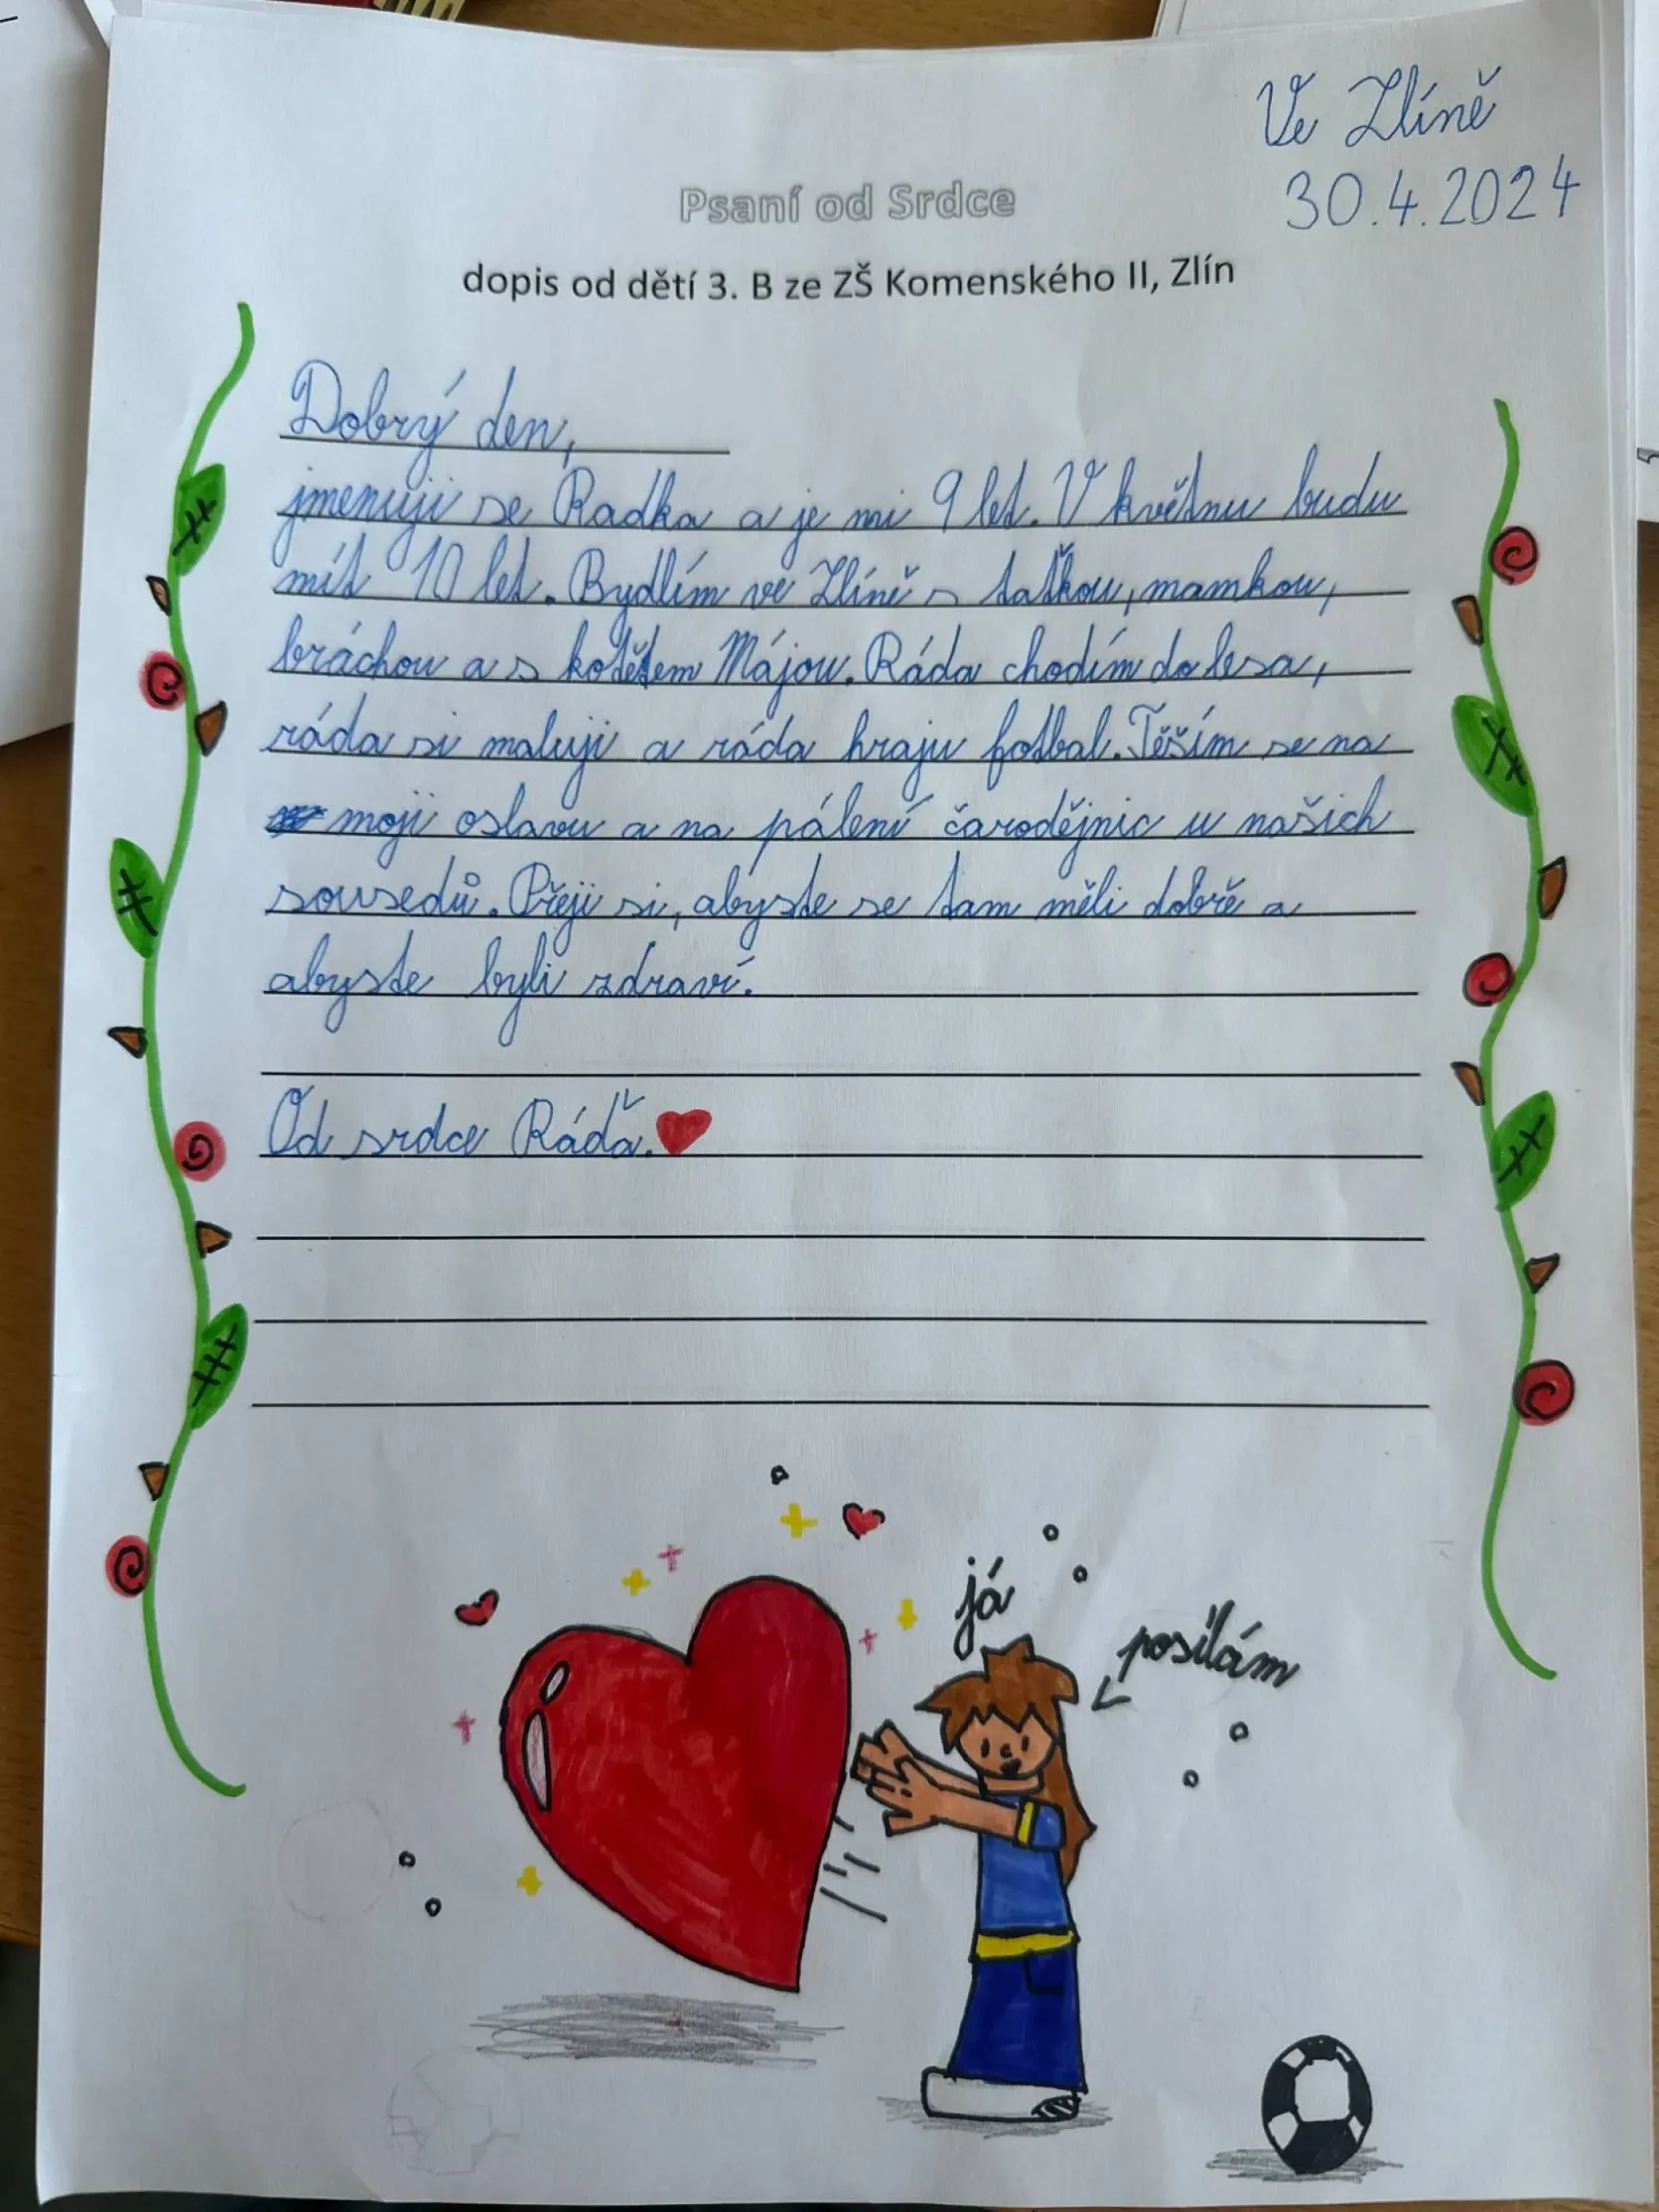 Ve Zlíně
30.4.2024
Psaní od Srdce
dopis od dětí 3. B ze ZŠ Komenského II, Zlín
Dobrý den,
jmenuji se Radka a je mi 9 let. V květnu budu
mít 10 let. Bydlím ve Zlíně s taťkou, mamkou,
bráchou a s kotětem Májou. Ráda chodím do lesa,
ráda si maluji a ráda hraju fotbal. Těším se na
moji oslavu a na pálení čarodějnic u našich
sousedů. Přeji si, abyste se tam měli dobře a
abyste byli zdraví.
Od srdce Ráďa.
já
posílám